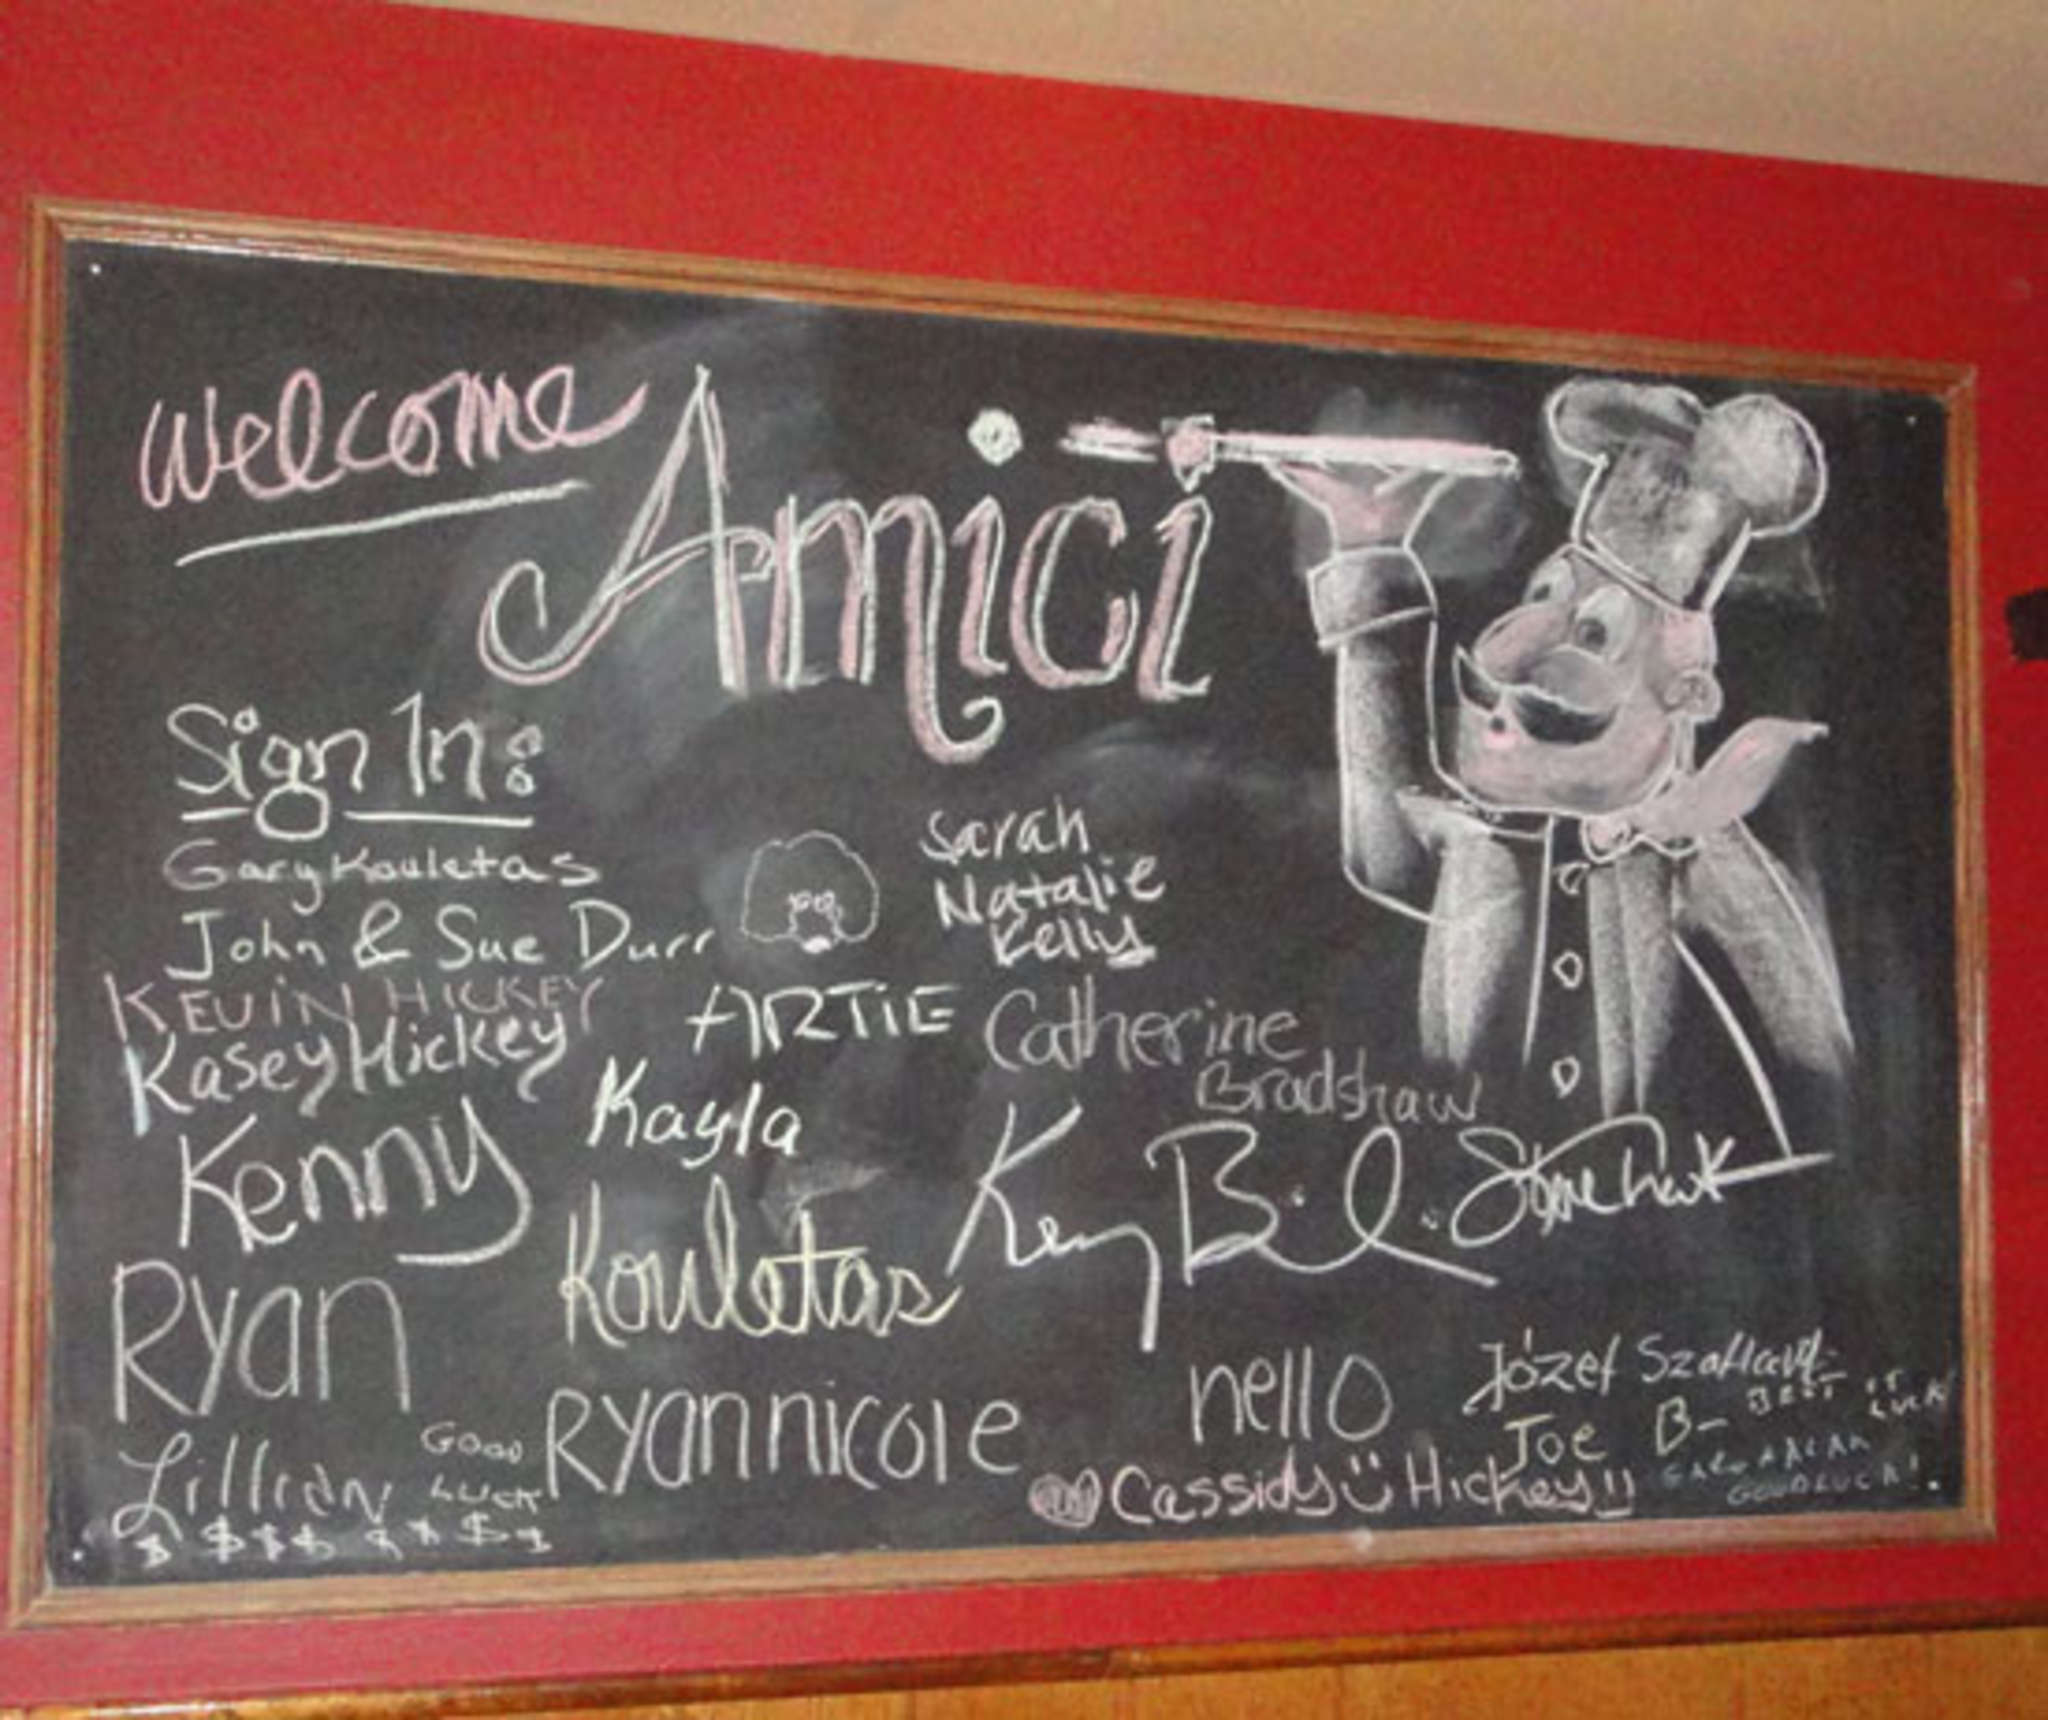 Welcome
Amici
Sign In:
Gary Kouletas
John & Sue Durr
KEVIN HICKEY
Kasey Hickey
Kenny
Ryan
Lillian
GOOD
LUCK
$ $$$ $$$$
ARTIE
Kayla
Kouletas
RYANNICOLE
Sarah
Natalie
Kelly
Catherine
Bradshaw
nello
Józef
Joe B-
BEST
LUCK
Cassidy Hickey
GOODLUCK!